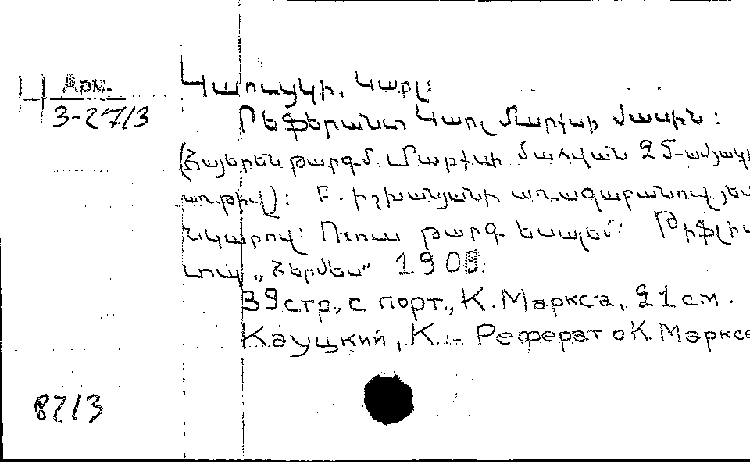 Կ Арм.
3-2713
Կաուցկի, Կարլ։
Րեֆերատ Կարլ Մարքսի մասին։
(Հայերեն թարգմ. Մարքսի մահվան 25-ամյակի
առթիվ)։ Բ. Իշխանյանի առաջաբանով յեվ
նկարով։ Ռուս. թարգ. Թիֆլիս
տպ. „Հերմես“ 1908.
39 стр., с порт., К. Маркса, 21 см.
Кауцкий, К. - Реферат о К. Маркса
8213